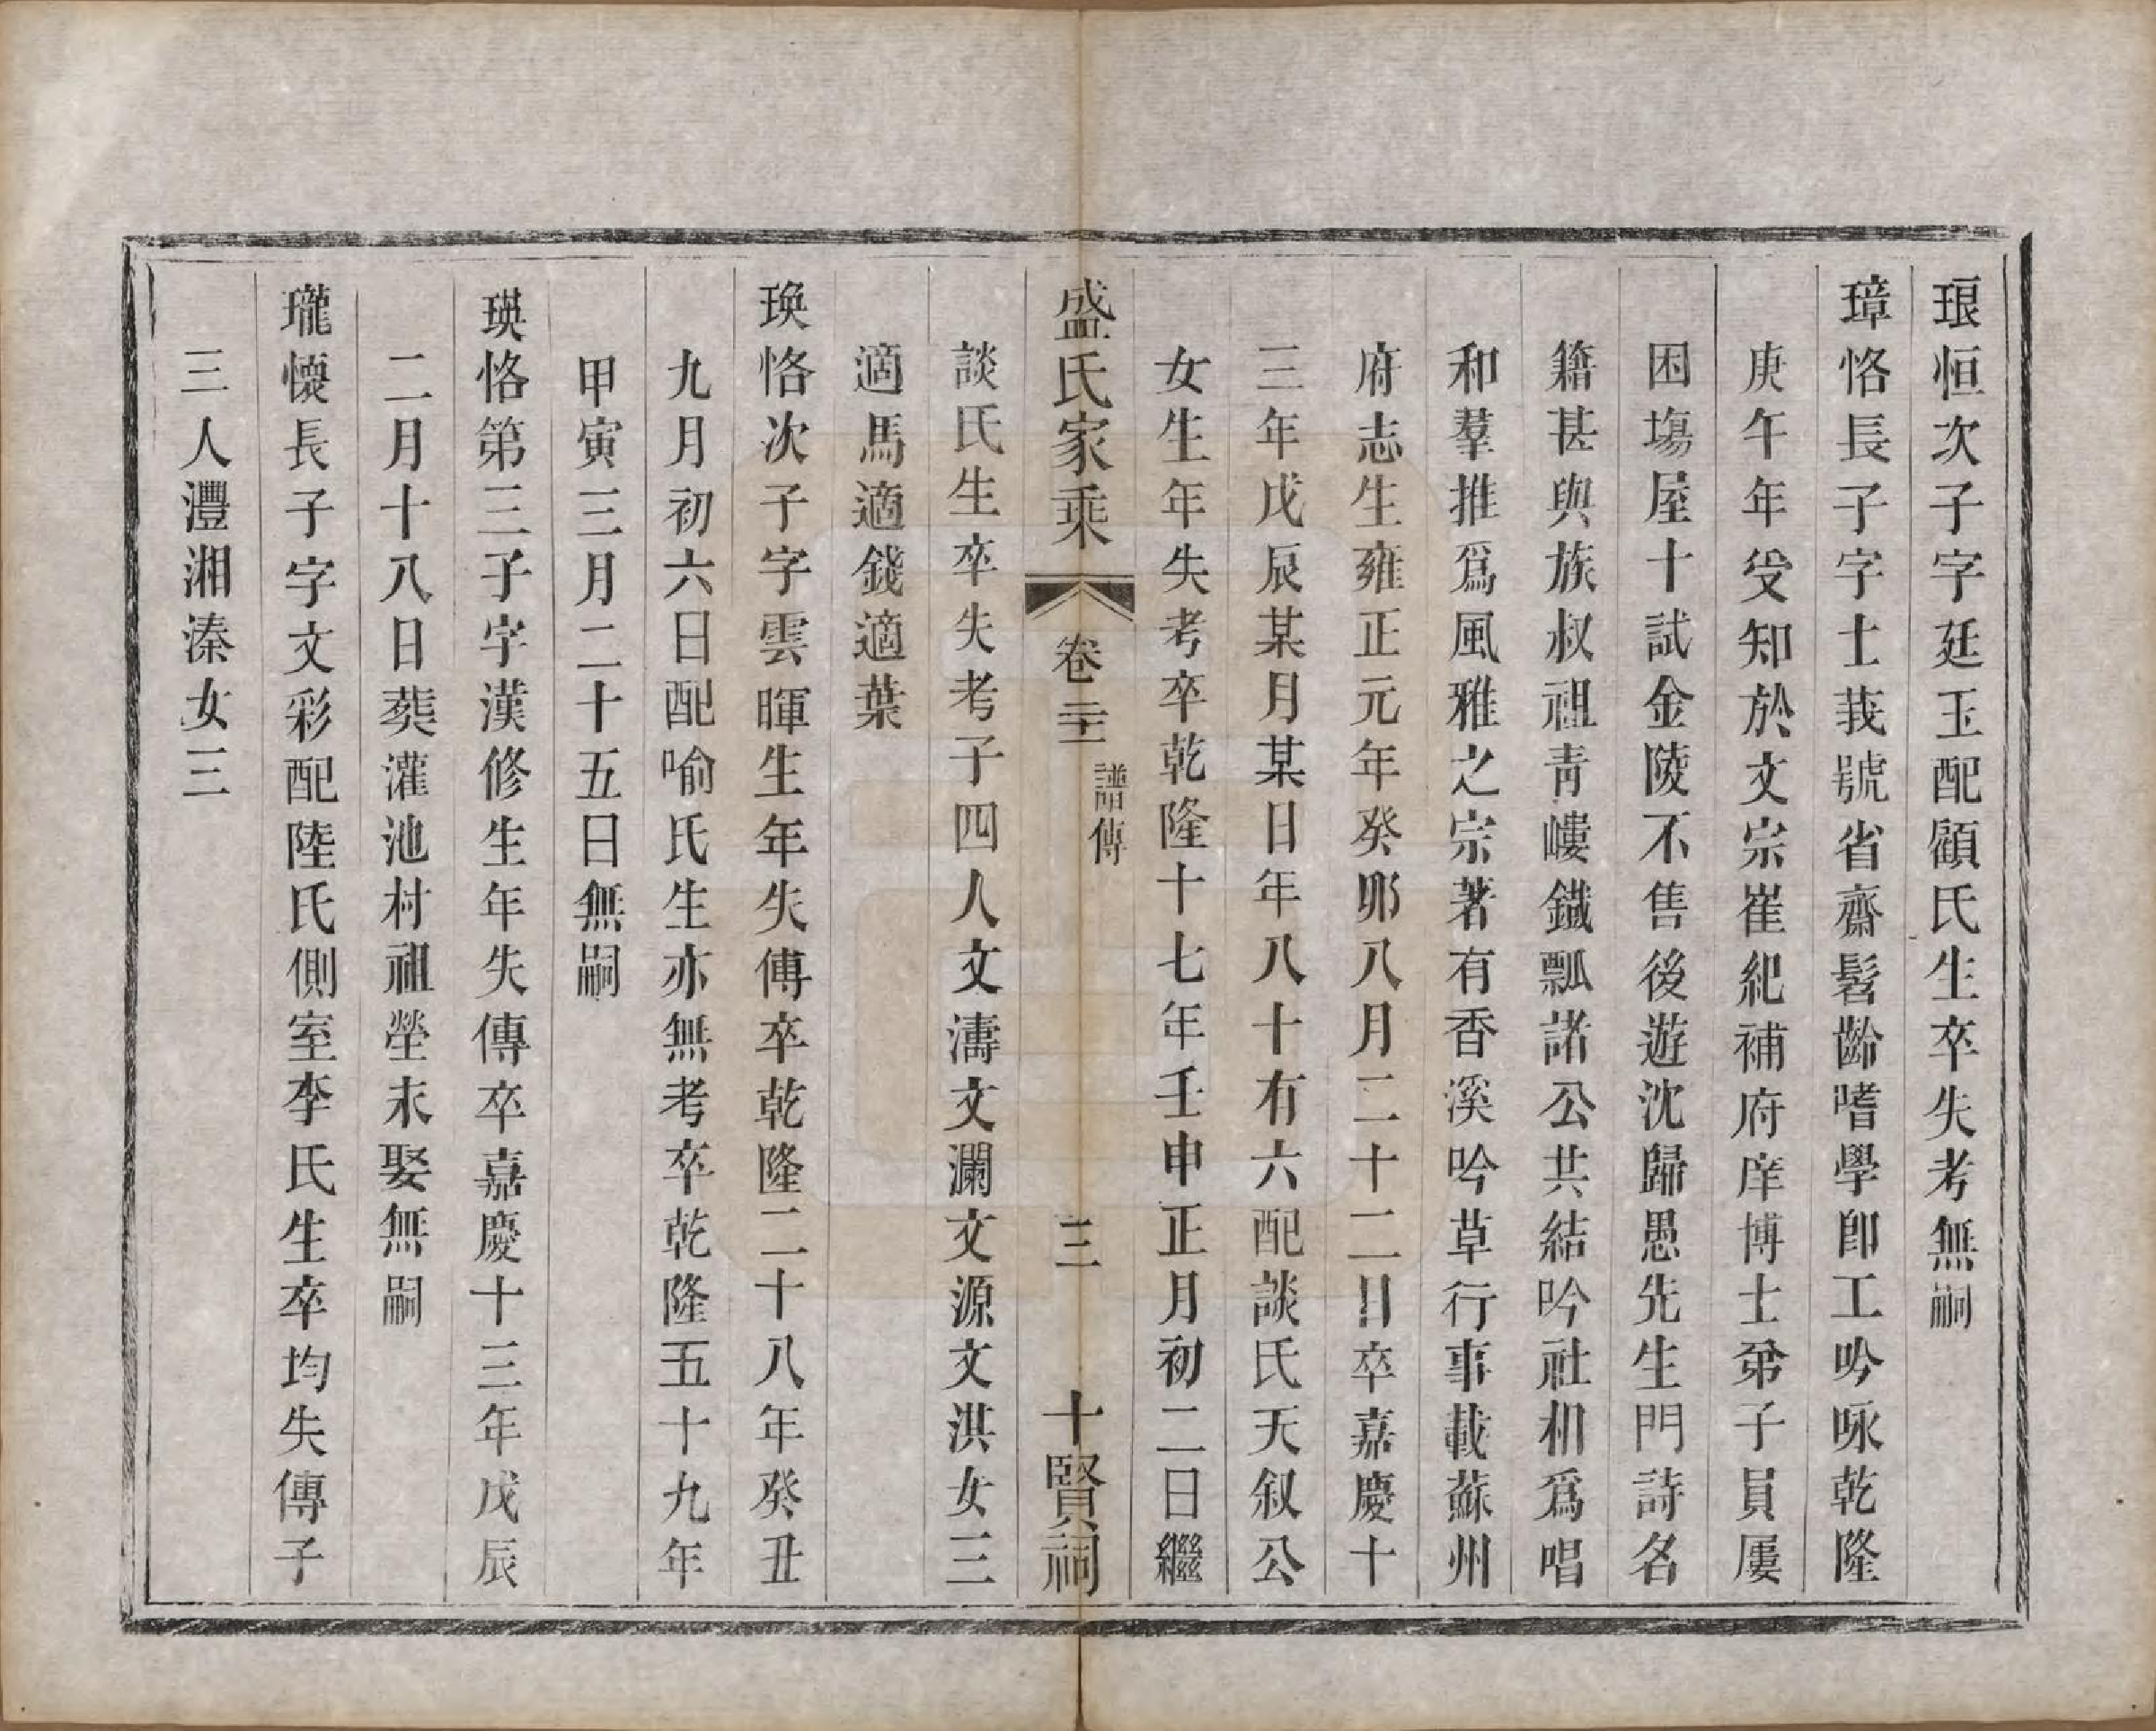 琅恒次子字廷玉配顧氏生卒失考無嗣
璋恪長子字士莪號省齋髫齡嗜學卽工吟咏乾隆
庚午年受知於文宗崔紀補府庠博士弟子員屢
困塲屋十試金陵不售後遊沈歸愚先生門詩名
籍甚與族叔祖靑嶁鐵瓢諸公共結吟社相爲唱
和羣推爲風雅之宗著有香溪吟草行事載蘇州
府志生雍正元年癸卯八月二十二日卒嘉慶十
三年戊辰某月某日年八十有六配談氏天叙公
女生年失考卒乾隆十七年壬申正月初二日繼
談氏生卒失考子四人文濤文瀾文源文淇女三
適馬適錢適葉
瑍恪次子字雲暉生年失傳卒乾隆二十八年癸丑
九月初六日配喻氏生亦無考卒乾隆五十九年
甲寅三月二十五日無嗣
瑛恪第三子字漢修生年失傳卒嘉慶十三年戊辰
二月十八日葬灌池村祖塋未娶無嗣
瓏懷長子字文彩配陸氏側室李氏生卒均失傳子
三人灃湘溱女三
盛氏家乘 卷二十二 譜傳 三 十賢祠